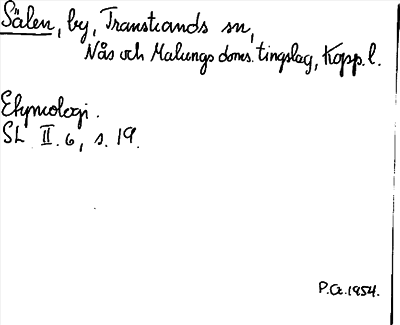 Sälen, by, Transtrands sn,
Nås och Malungs doms. tingslag, Kopp. l.
Etymologi.
SL II. 6, s. 19.
P.Ct. 1954.